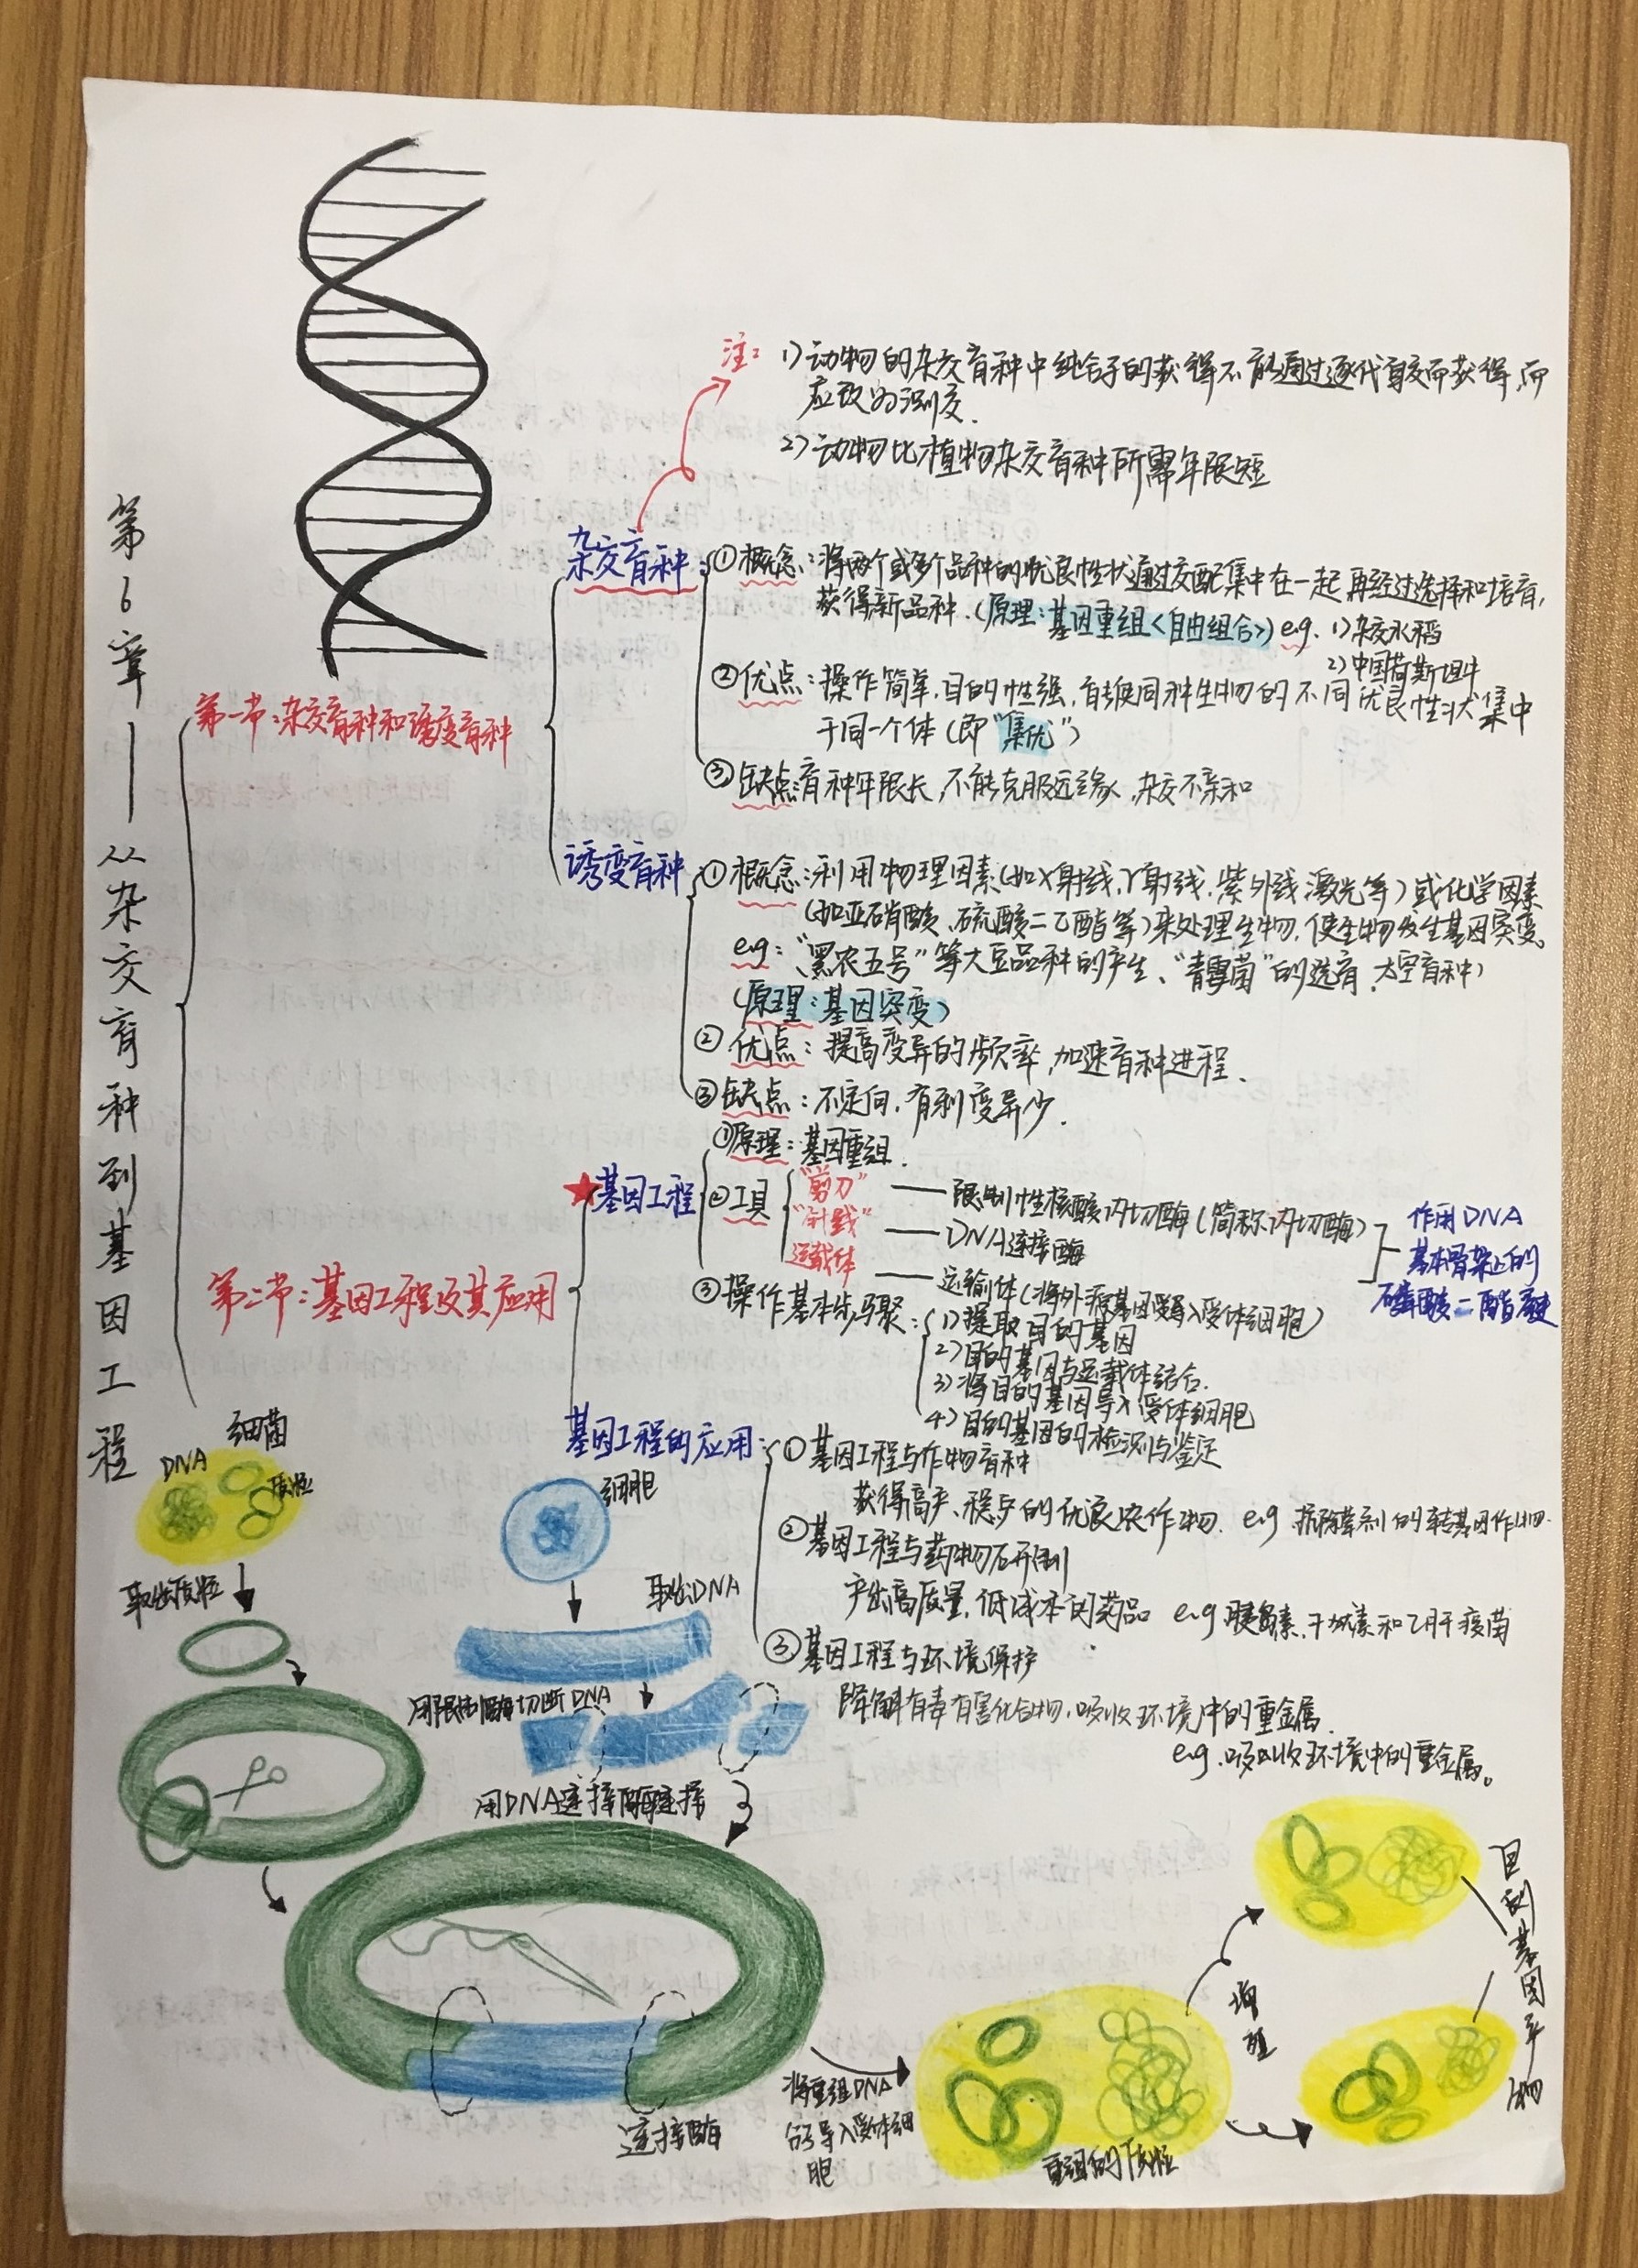 第6章——从杂交育种到基因工程
第一节:杂交育种和诱变育种
注:1)动物的杂交育种中纯合子的获得不能通过逐代自交而获得,而
应改为测交.
2)动物比植物杂交育种所需年限短
杂交育种:
①概念:将两个或多个品种的优良性状通过交配集中在一起再经过选择和培育,
获得新品种.(原理:基因重组<自由组合>)e.g. 1)杂交水稻
2)中国荷斯坦牛
②优点:操作简单,目的性强,能使同种生物的不同优良性状集中
于同一个体(即"集优")
③缺点:育种年限长,不能克服远缘,杂交不亲和
诱变育种
①概念:利用物理因素(如X射线,γ射线,紫外线激光等)或化学因素
(如亚硝酸、硫酸二乙酯等)来处理生物,使生物发生基因突变。
e.g:"黑农五号"等大豆品种的产生、"青霉菌"的选育、太空育种)
(原理:基因突变)
②优点:提高变异的频率,加速育种进程.
③缺点:不定向,有利变异少.
第二节:基因工程及其应用
★基因工程
①原理:基因重组.
②工具
"剪刀"——限制性核酸内切酶(简称:内切酶)
"针线"——DNA连接酶
运载体——运输体(将外源基因导入受体细胞)
作用DNA
基本骨架上的
磷酸二酯键
③操作基本步骤:
1)提取目的基因
2)目的基因与运载体结合.
3)将目的基因导入受体细胞
4)目的基因的检测与鉴定
基因工程的应用:
①基因工程与作物育种
获得高产、稳产的优良农作物. e.g 抗除草剂的转基因作物.
②基因工程与药物研制
产出高质量,低成本的药品 e.g 胰岛素,干扰素和乙肝疫苗
③基因工程与环境保护
降解有毒有害化合物,吸收环境中的重金属.
e.g.吸收环境中的重金属。
细菌
DNA
质粒
取出质粒
细胞
取出DNA
用限制酶切断DNA
用DNA连接酶连接
连接酶
将重组DNA
分子导入受体细
胞
重组的质粒
增殖